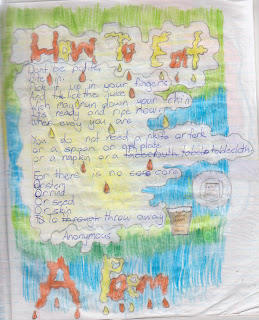 How To Eat
Dont be polite
Bite in.
Pick it up in your fingers
And lick the juice
Wich may run down your chin
Its ready and ripe now
you are
You do not need a knife or fork
or a spoon or plate
or a napkin or a tablecloth
For there is no core
Or stem
Or rind
Or seed
Or skin
To throw away
Anonymous
A Poem